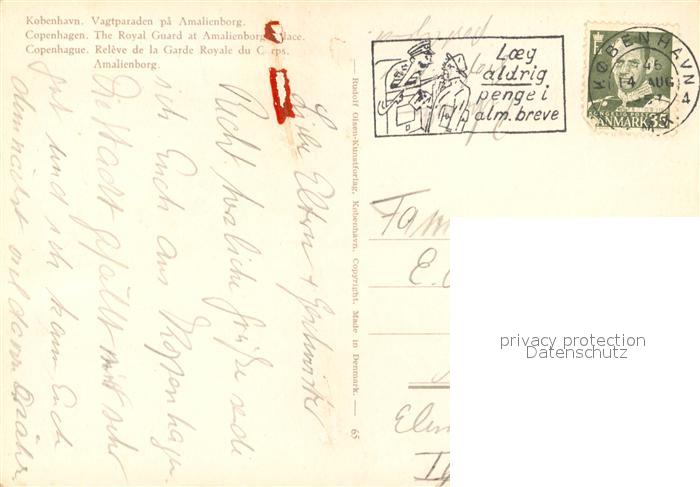 København. Vagtparaden på Amalienborg.
Copenhagen. The Royal Guard at Amalienborg Palace.
Copenhague. Relève de la Garde Royale du Corps.
Amalienborg.
Læg
aldrig
penge i
alm. breve
KØBENHAVN
14 AUG
DANMARK 35
Rudolf Olsen-Kunstforlag, København. Copyright. Made in Denmark. — 65
Liebe Eltern + Geschwister
Recht herzliche Grüße sende
ich Euch aus Kopenhagen.
Die Stadt gefällt mir sehr
gut und ich kann Euch
demnächst viel davon erzählen
Fam
E.
privacy protection
Datenschutz